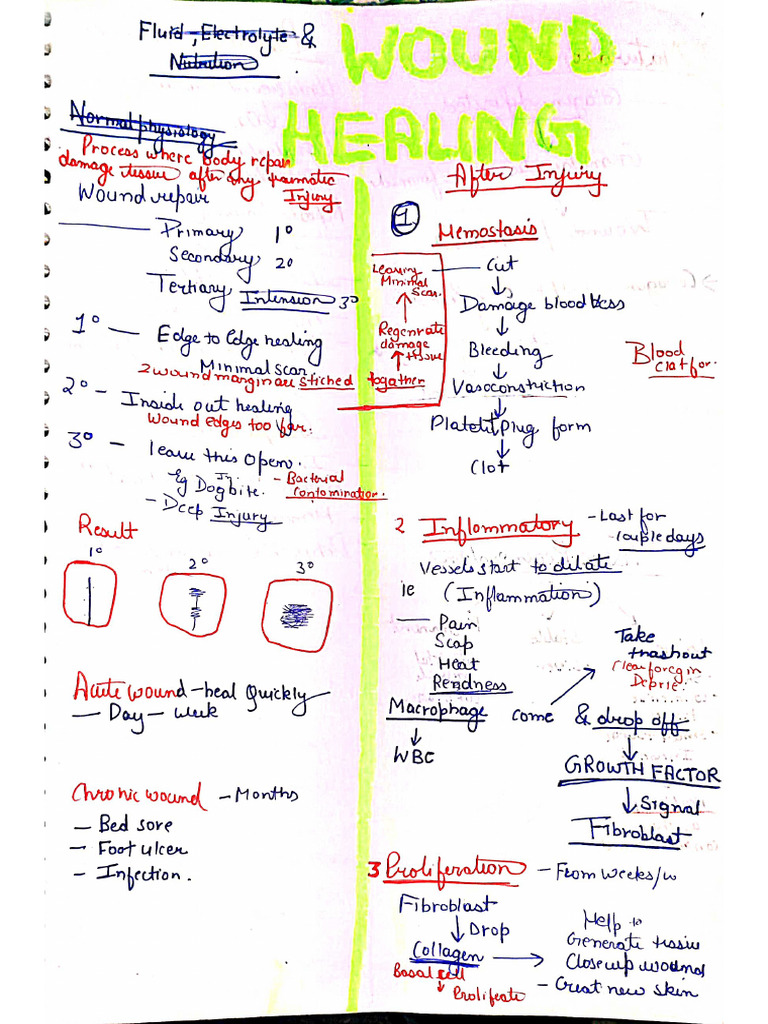 Fluid, Electrolyte &
Nutrition
WOUND
HEALING
Normal physiology
Process where body repair
damage tissue after any traumatic
Injury
Wound repair
Primary 1°
Secondary 2°
Tertiary Intension 3°
1° — Edge to Edge healing
Minimal scar
2 wound margin are stiched
togather
→ Regenrate damage tissue
→ Leaving Minimal Scar.
2° – Inside out healing
Wound edges too far.
3° – leave this Open.
Eg Dog bite. - Bacterial
contamination.
– Deep Injury
Result
1° 2° 3°
Acute wound – heal Quickly
— Day – week
Chronic wound – Months
– Bed sore
– Foot ulcer
– Infection.
After Injury
1 Hemostasis
Cut
↓
Damage blood
↓
Bleeding
↓
Vasoconstriction
↓
Platelet plug form
↓
Clot
Blood
Clat for.
2 Inflammatory – Last for
couple days
Vessels start to dilate
ie (Inflammation)
— Pain
Heat
Rendness
Macrophage come & drop off
↓
WBC
Take
trashout
Clear foregin
Depric.
↓
GROWTH FACTOR
↓ Signal
Fibroblast
3 Proliferation – From weeks/w
Fibroblast
↓ Drop
Collagen →
Basal cell
↓ Prolifeate
Help to
Generate tissue
Close up wound
– Creat new skin